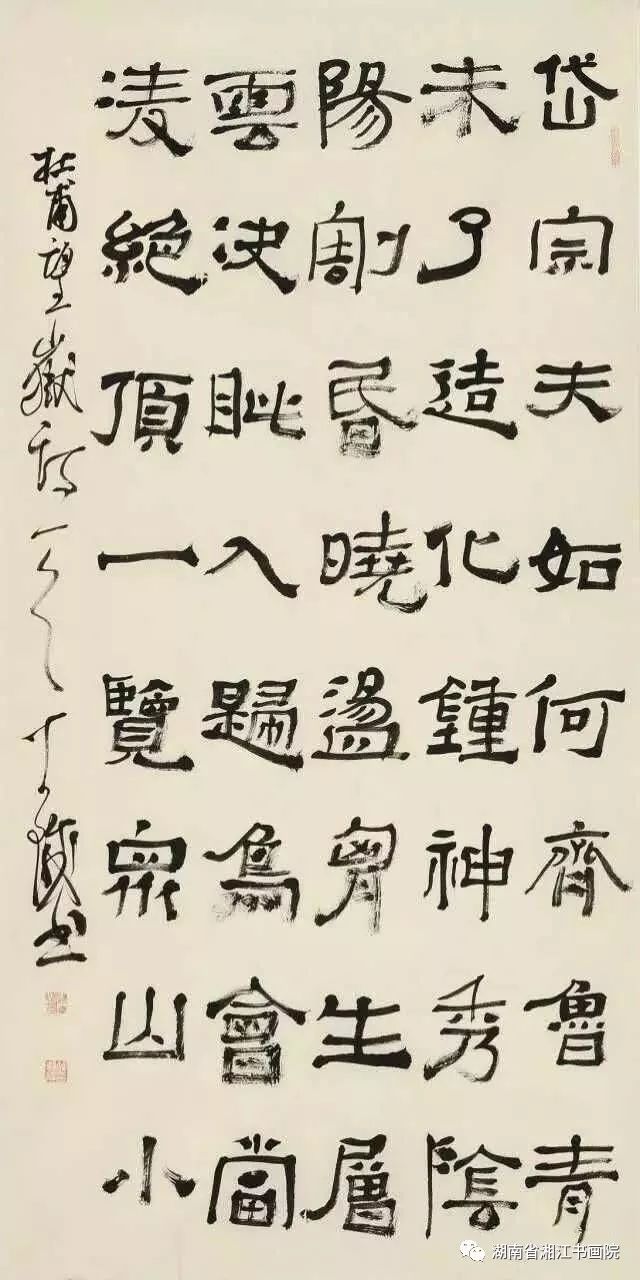 岱宗夫如何齊魯青
未了造化鍾神秀陰
陽割昬曉盪胷生層
雲決眦入歸鳥會當
淩絶頂一覽眾山小
杜甫望嶽詩一首 書
湖南省湘江书画院